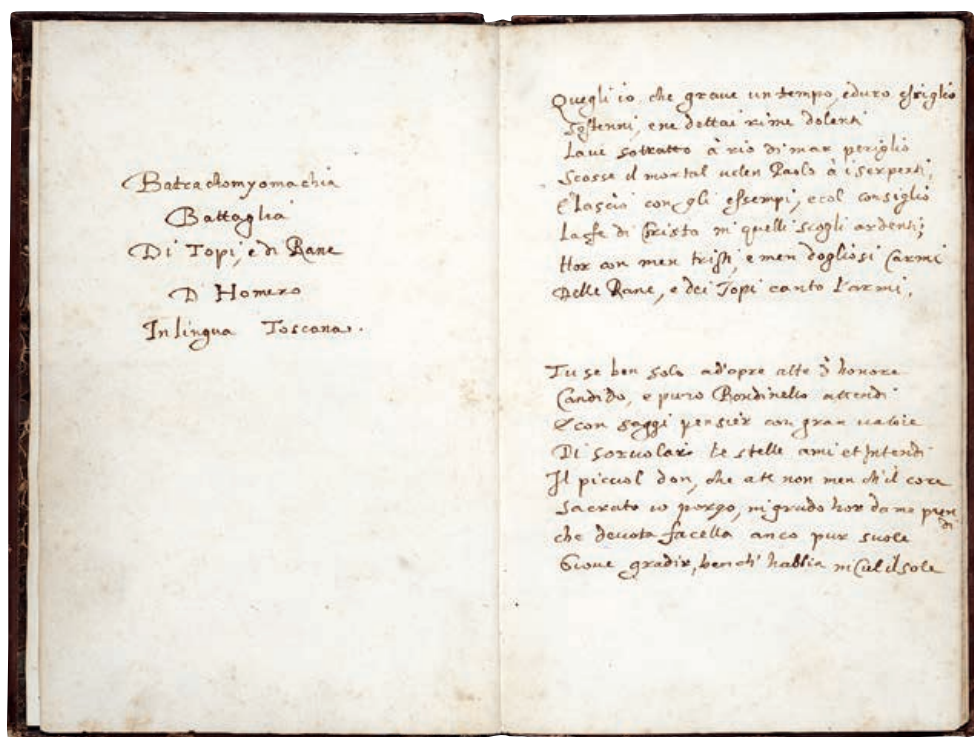 Batrachomyomachia
Battaglia
Di Topi, e di Rane
D Homero
In lingua Toscana.
Quegli io, che graue un tempo, e duro essiglio
Sostenni, e ne dettai rime dolenti
La ue sotratto à rio di mar periglio
Scosse il mortal uelen Paolo à i serpenti,
E lasciò con gli essempi, e col consiglio
La fe di Christo in quelli scogli ardenti;
Hor con men tristi, e men dogliosi Carmi
Delle Rane, e dei Topi canto l'armi.
Tu se ben solo ad'opre alte d honore
Candido, e puro Bondinello attendi
E con saggi pensier con gran
Di soruolar le stelle ami et intendi
Il picciol don, che a te non men ch'il core
Sacrato io porgo, in grado hor da me prendi
che deuota facella anco pur suole
Gioue gradir, bench' habbia in Ciel il sole